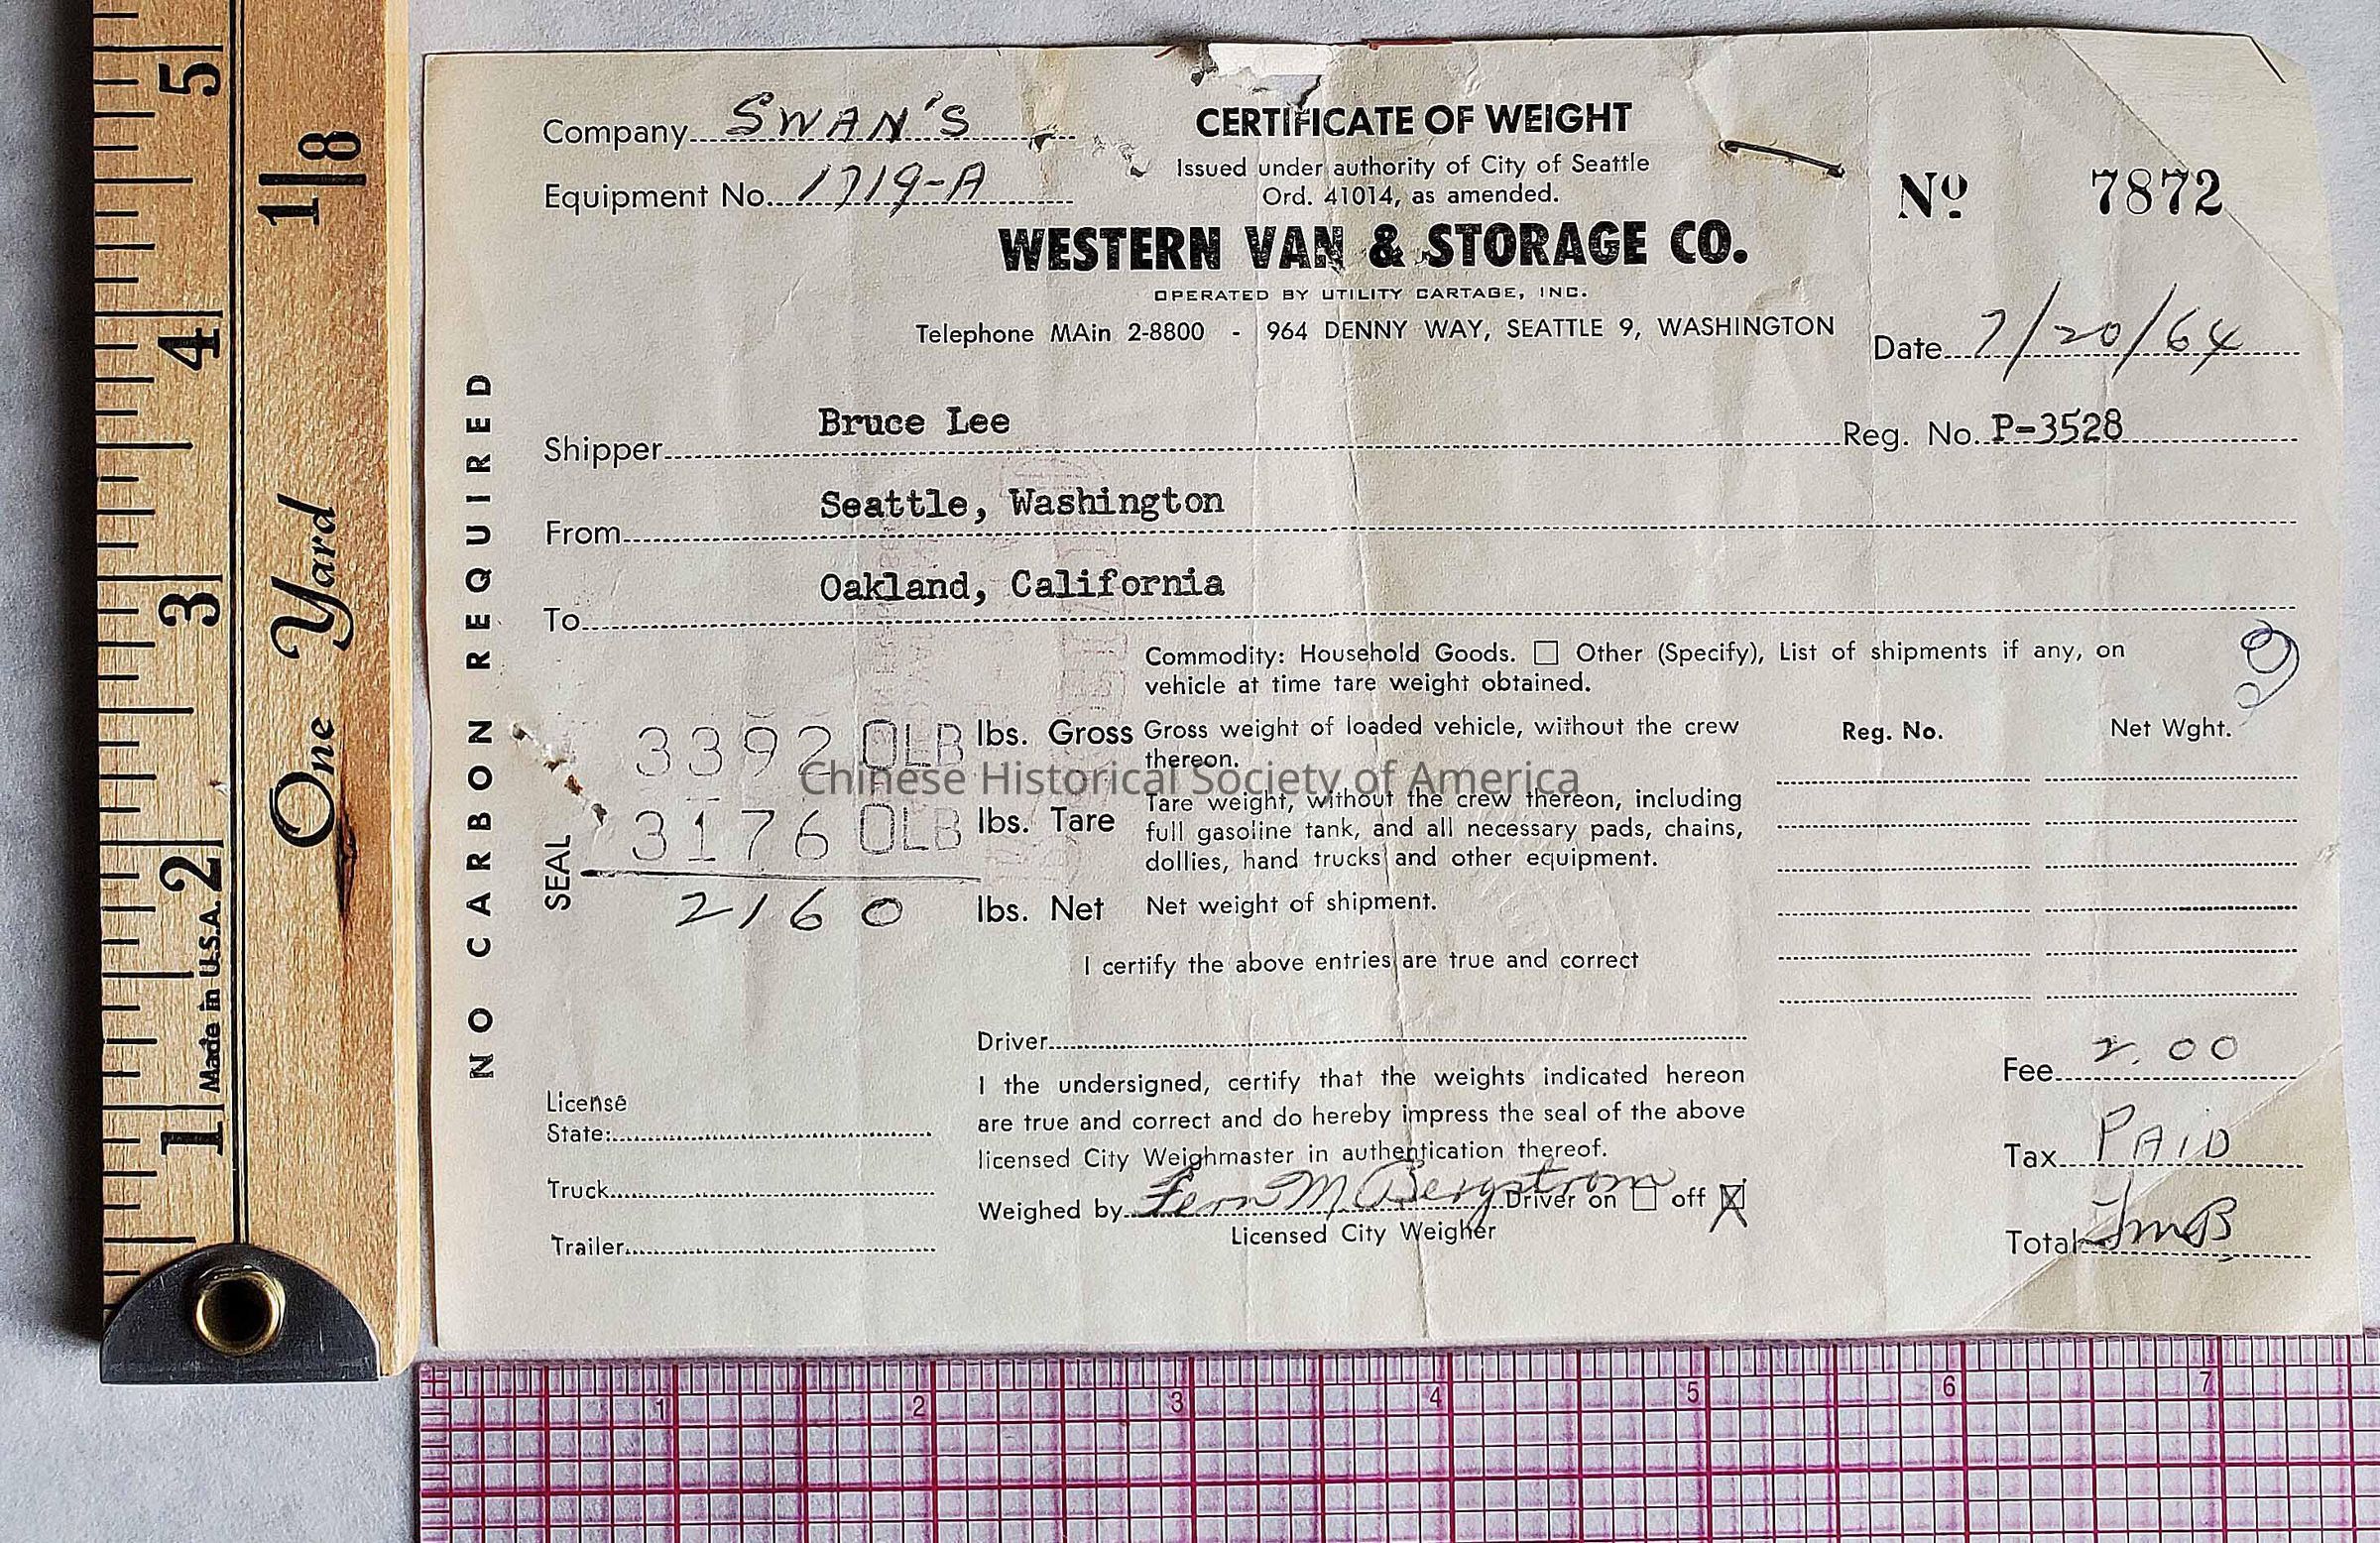 Company SWAN'S
Equipment No. 1719-A
CERTIFICATE OF WEIGHT
Issued under authority of City of Seattle
Ord. 41014, as amended.
WESTERN VAN & STORAGE CO.
OPERATED BY UTILITY CARTAGE, INC.
Telephone MAin 2-8800 - 964 DENNY WAY, SEATTLE 9, WASHINGTON
No 7872
Date 7/20/64
NO CARBON REQUIRED
Shipper Bruce Lee Reg. No. P-3528
From Seattle, Washington
To Oakland, California
Commodity: Household Goods. □ Other (Specify), List of shipments if any, on
vehicle at time tare weight obtained.
33920LB lbs. Gross Gross weight of loaded vehicle, without the crew
thereon.
31760LB lbs. Tare Tare weight, without the crew thereon, including
full gasoline tank, and all necessary pads, chains,
dollies, hand trucks and other equipment.
2160 lbs. Net Net weight of shipment.
SEAL
Reg. No. Net Wght.
I certify the above entries are true and correct
Driver
I the undersigned, certify that the weights indicated hereon
are true and correct and do hereby impress the seal of the above
licensed City Weighmaster in authentication thereof.
Weighed by Fern M Bergstrom Driver on □ off ☒
Licensed City Weigher
License
State:
Truck
Trailer
Fee 2.00
Tax PAID
Total FMB
Chinese Historical Society of America
5
4
3
2
1
Made in U.S.A.
One Yard
1/8
1 2 3 4 5 6 7